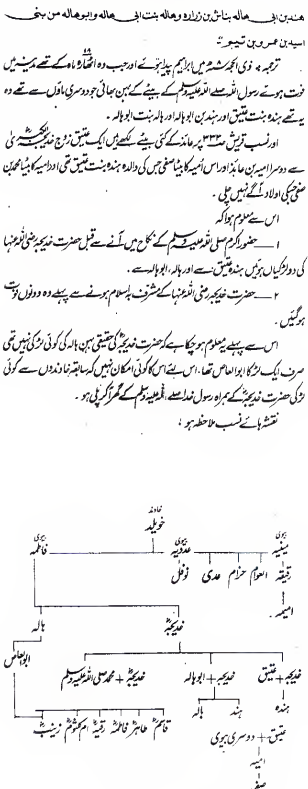 ہند بن ابی ہالہ بناش بن زرارہ وہالہ بنت ابی ہالہ وابوہالہ من بنی
اسید بن عمرو بن تمیم۔
ترجمہ : ذی الحجہ ۸ھ میں ابراہیم پیدا ہوئے اور جب وہ اٹھارہ ۱۸ ماہ کے تھے مدینہ میں
فوت ہوئے رسول اللہ صلے اللہ علیہ وسلم کے بیٹے کے بہن بھائی جو دوسری ماؤں سے تھے وہ
یہ تھے ہندہ بنت عتیق اور ہند بن ابوہالہ اور ہالہ بنت ابوہالہ۔
اور نسب قریش صـ ۳۳۳ پر عائذ کے کئی بیٹے لکھے ہیں ایک عتیق زوج خدیجۃ الکبریٰ
سے دوسرا امیہ بن عائذ اور اس امیہ کا بیٹا صفی جس کی والدہ ہندہ بنت عتیق تھی اور امیہ کا بیٹا محمد بن
صفی جس کی اولاد آگے نہیں چلی۔
اس سے معلوم ہوا کہ
۱ — حضور اکرم صلی اللہ علیہ وسلم کے نکاح میں آنے سے قبل حضرت خدیجہ رضی اللہ عنہا
کی دو لڑکیاں ہوئیں ہندہ عتیق سے اور ہالہ، ابوہالہ سے۔
۲ — حضرت خدیجہ رضی اللہ عنہا کے مشرف بہ اسلام ہونے سے پہلے وہ دونوں فوت
ہوگئیں۔
اس سے پہلے یہ معلوم ہو چکا ہے کہ حضرت خدیجہؓ کی حقیقی بہن ہالہ کی کوئی لڑکی نہیں تھی
صرف ایک لڑکا ابوالعاص تھا۔ اس لئے اس کا کوئی امکان نہیں کہ سابقہ خاوندوں سے کوئی
لڑکی حضرت خدیجہؓ کے ہمراہ رسول خدا صلے اللہ علیہ وسلم کے گھر آ کر پلی ہو۔
نقشہ ہائے نسب ملاحظہ ہو :
خاوند
خویلد
بیوی فاطمہ بیوی عددیہ بیوی مینیہ
نوفل عدی حزام العوام رقیقہ
امیمہ
ہالہ خدیجہؓ
ابوالعاص
خدیجہؓ + محمد صلی اللہ علیہ وسلم خدیجہ + ابوہالہ خدیجہ + عتیق
ہالہ ہند ہندہ
زینبؓ ام کلثومؓ رقیہؓ فاطمہؓ طاہرؓ قاسمؓ
عتیق + دوسری بیوی
امیہ
صفی